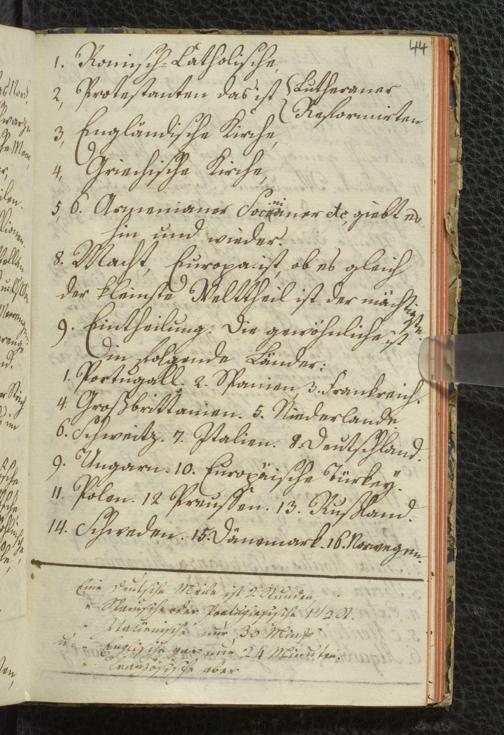 44
1. Römisch-Catholische,
2, Protestanten das ist { Lutheraner
Reformirten
3, Engländische Kirche,
4, Griechische Kirche,
5, 6. Armenianer Socinianer etc, giebt es
hin und wieder.
8. Macht, Europa ist, ob es gleich
der kleinste Welttheil ist der mächtigste
9. Eintheilung: Die gewöhnliche ist
in folgende Länder:
1. Portugall. 2. Spanien, 3. Frankreich.
4. Großbrittanien. 5. Niederlande
6. Schweitz. 7. Italien. 8. Deutschland.
9. Ungarn. 10. Europäische Türkey.
11. Polen. 12 Preussen. 13. Rußland.
14. Schweden. 15. Dänemark. 16. Norwegen
Eine deutsche Meile ist 2 Stunden,
" Spanische oder 1 1/2 St.
" Italienische nur 30 Minut
u. Englische gar nur 24 Minuten.
" Französische aber